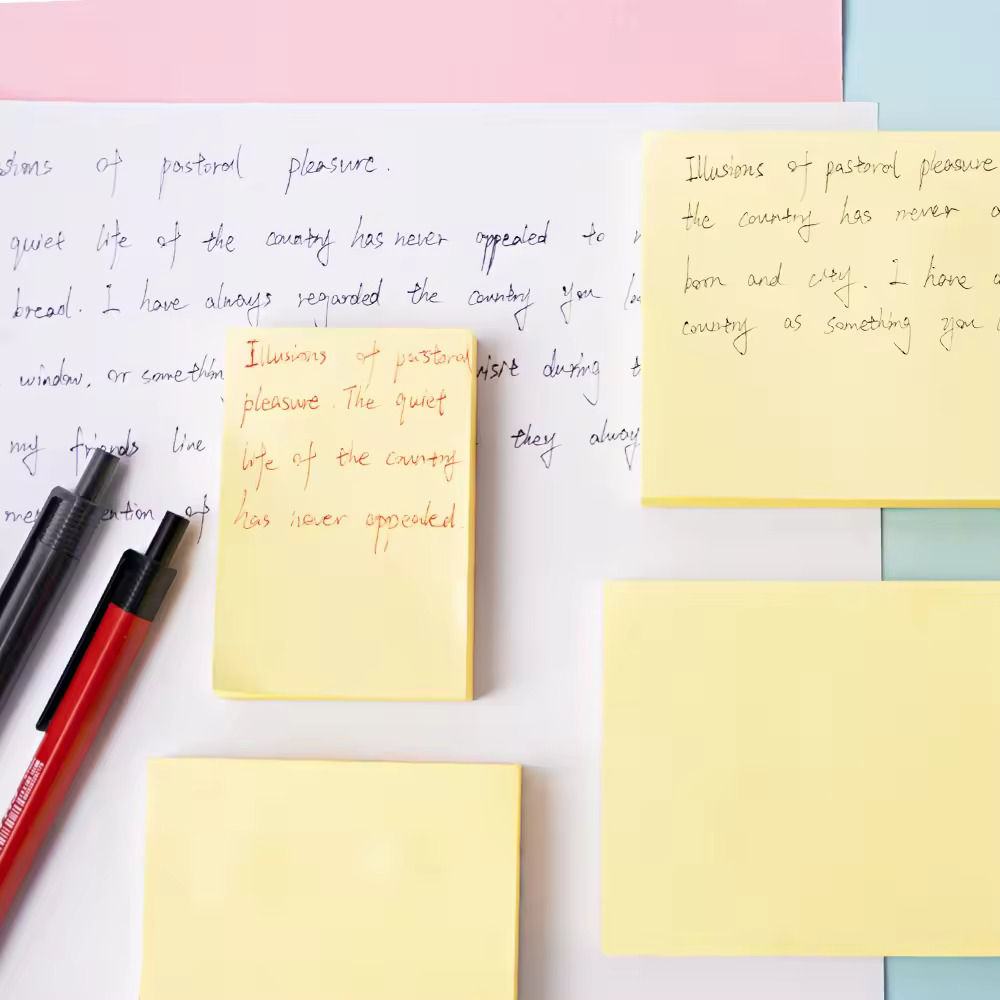 of pastoral pleasure.
quiet life of the country has never appealed to
bread. I have always regarded the country you
window, or somethin
during
my friends live
they alway
of
Illusions of pastoral
pleasure. The quiet
life of the country
has never appealed
Illusions of pastoral pleasure
the country has never
born and city. I have
country as something you